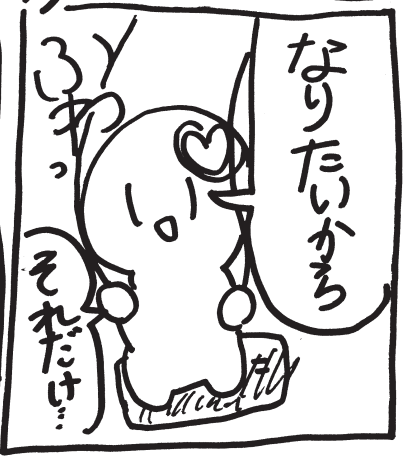 なりたいから
ふわっ
それだけ…